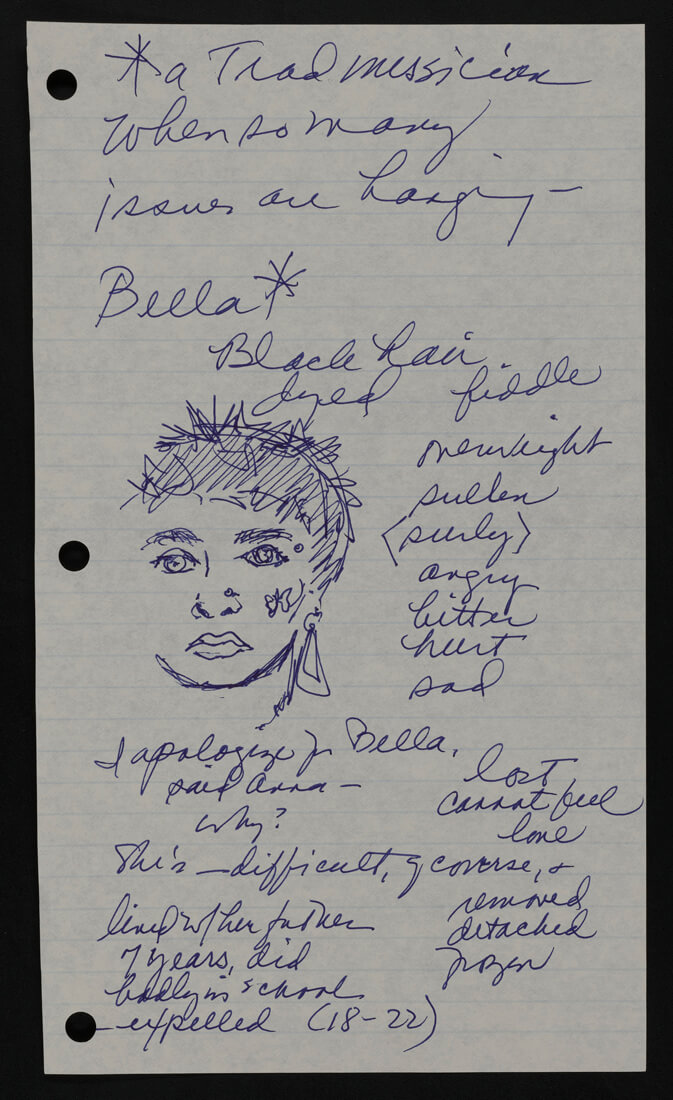 *a Trad musician
when so many
issues are hanging –
Bella*
Black hair
dyed fiddle
overweight
sullen
<surly>
angry
bitter
hurt
sad
I apologize for Bella,
said Anna –
why?
lost
cannot feel
love
She's – difficult, of course, +
lived w/ her father
7 years, did
badly in school
– expelled (18–22)
removed
detached
frozen